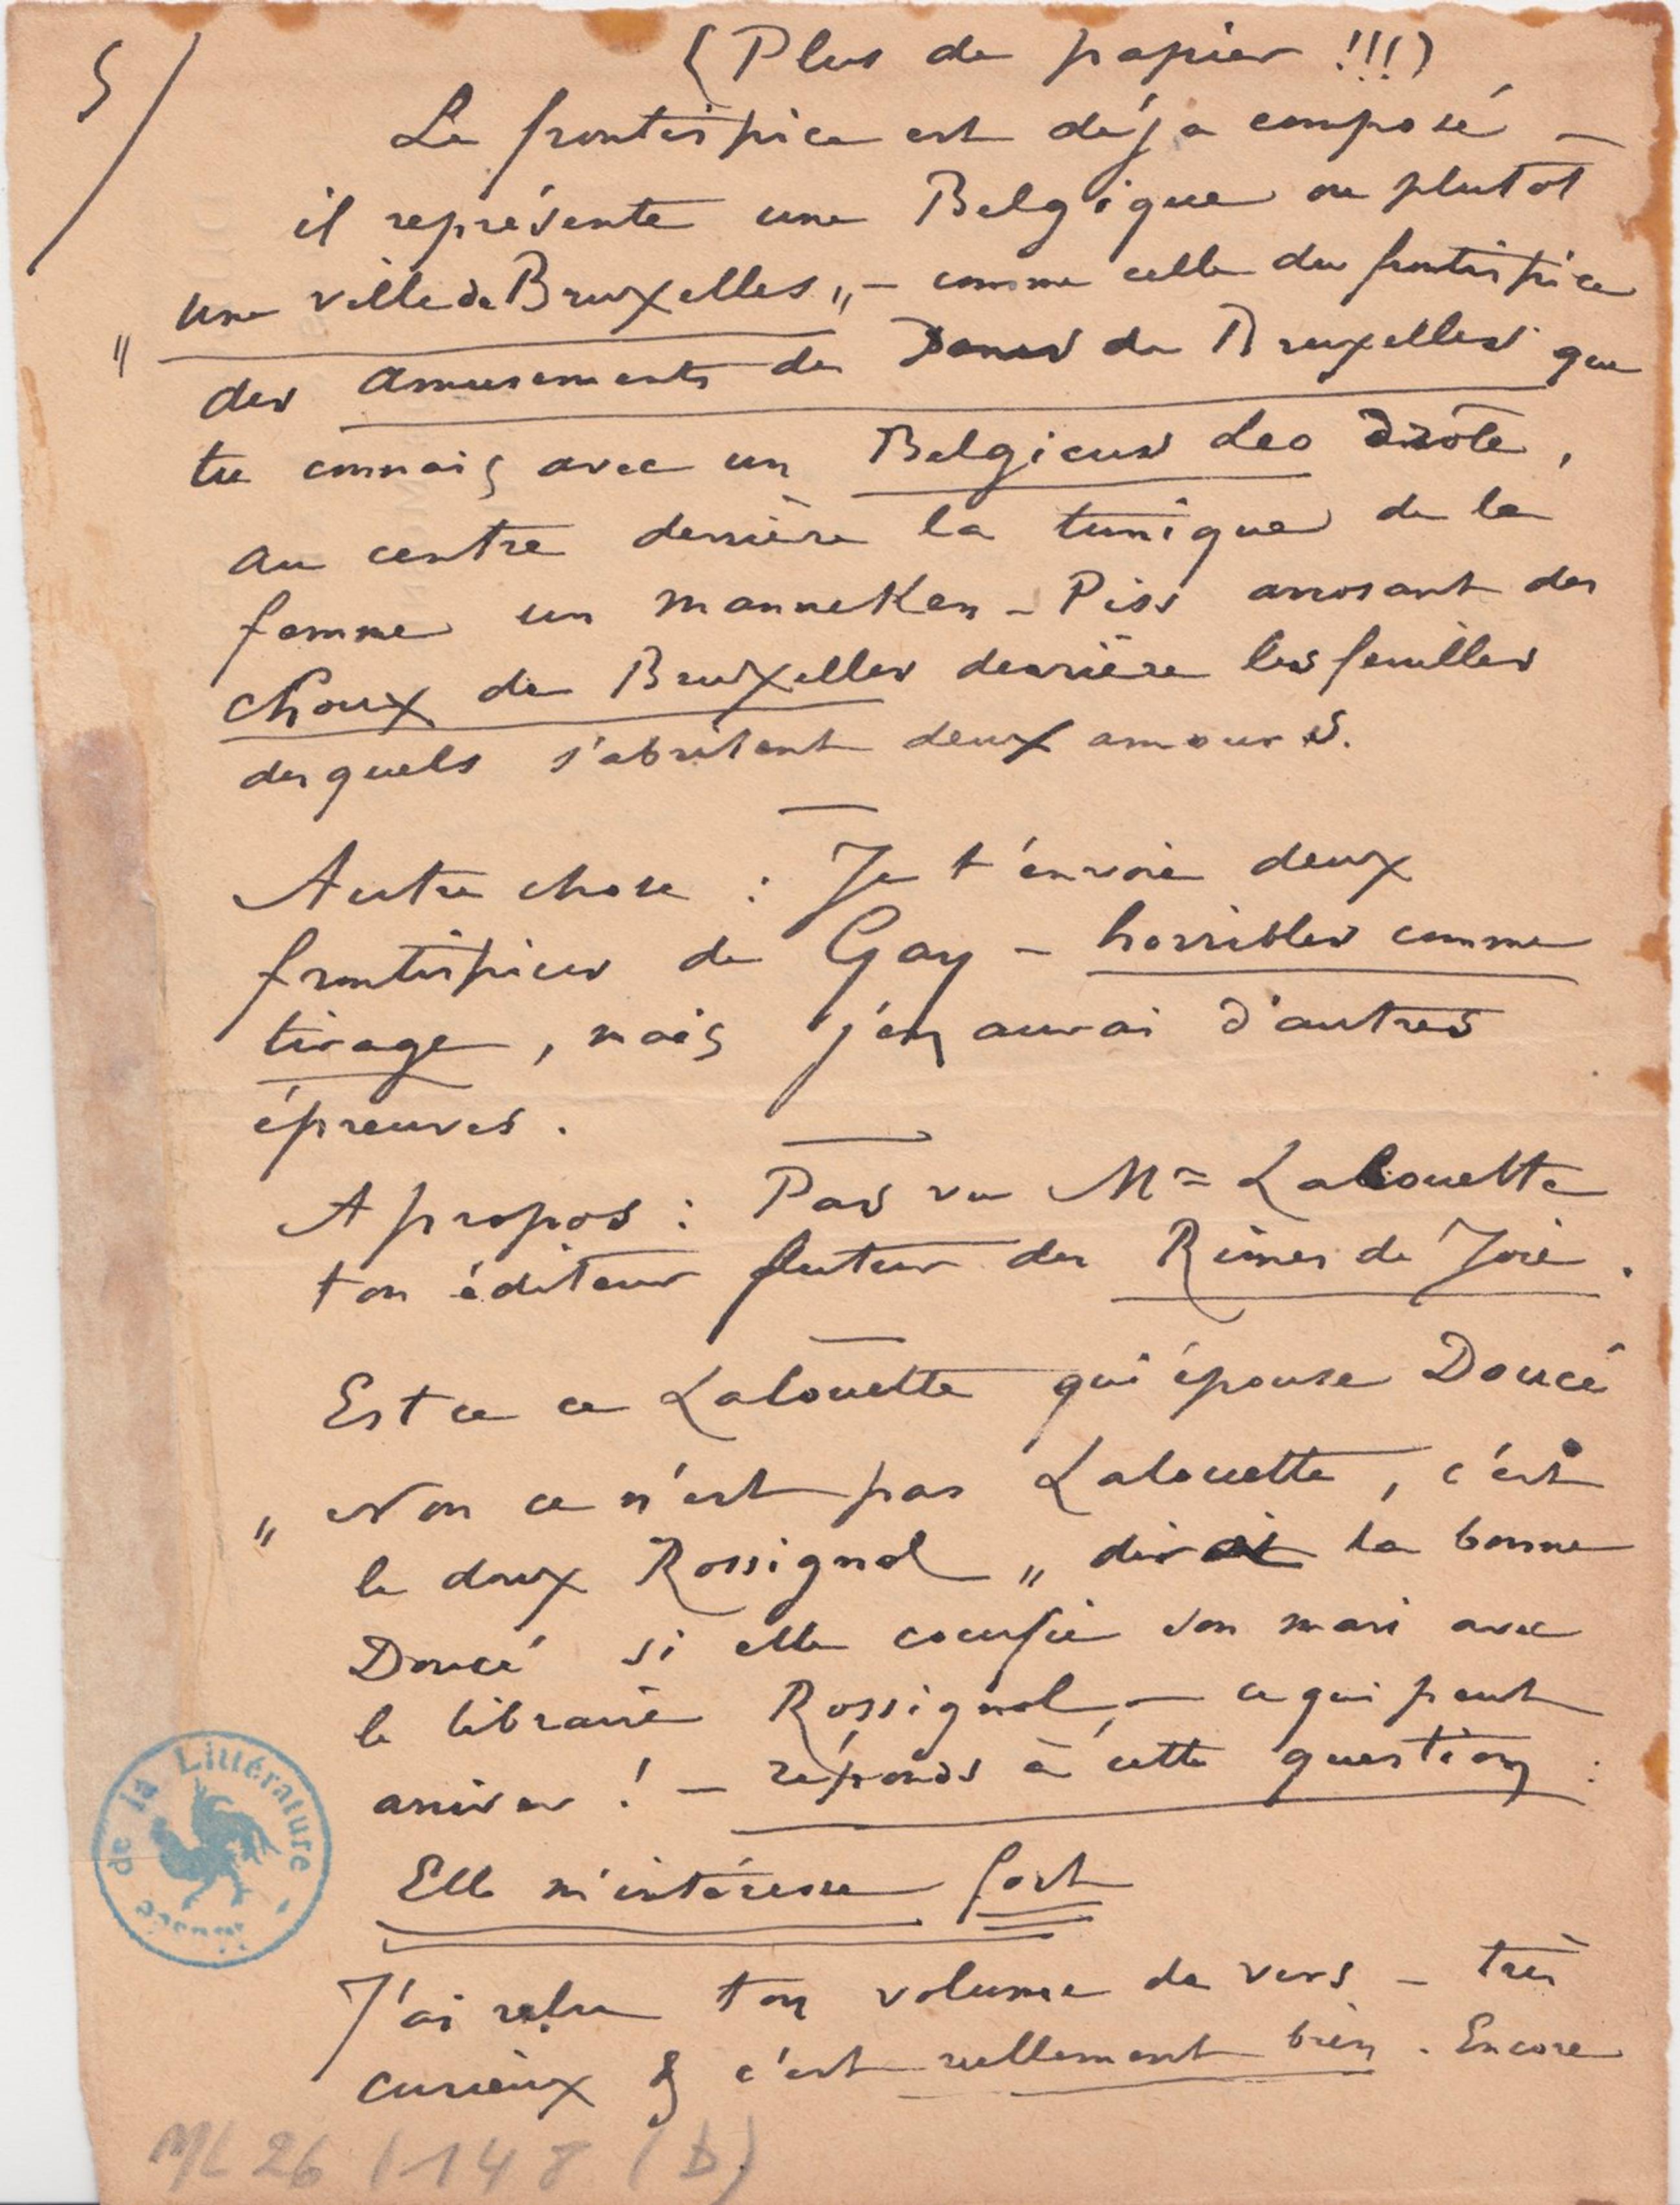 5/
(Plus de papier !!!)
Le frontispice est déjà composé –
il représente une Belgique ou plutot
„ une ville de Bruxelles „ – comme celle du frontispice
des amusements des Dames de Bruxelles que
tu connais avec un Belgicus Leo drôle,
au centre derrière la tunique de la
femme un manneken-Piss arrosant des
choux de Bruxelles derrière les feuilles
desquels s'abritent deux amours.
Autre chose : Je t'envoie deux
frontispices de Gay – horribles comme
tirage, mais j'en aurai d'autres
épreuves.
A propos : Pas vu Mr Lalouette
ton éditeur futur des Rimes de Joie.
Est ce ce Lalouette qui épouse Doucé
„ Non ce n'est pas Lalouette, c'est
le doux Rossignol „ dirait la bonne
Doucé si elle cocufie son mari avec
le libraire Rossignol – ce qui peut
arriver ! – réponds à cette question :
Elle m'intéresse fort
J'ai relu ton volume de vers – très
curieux & c'est reellement bien. Encore
Musée de la Littérature
ML 26 / 148 (D)